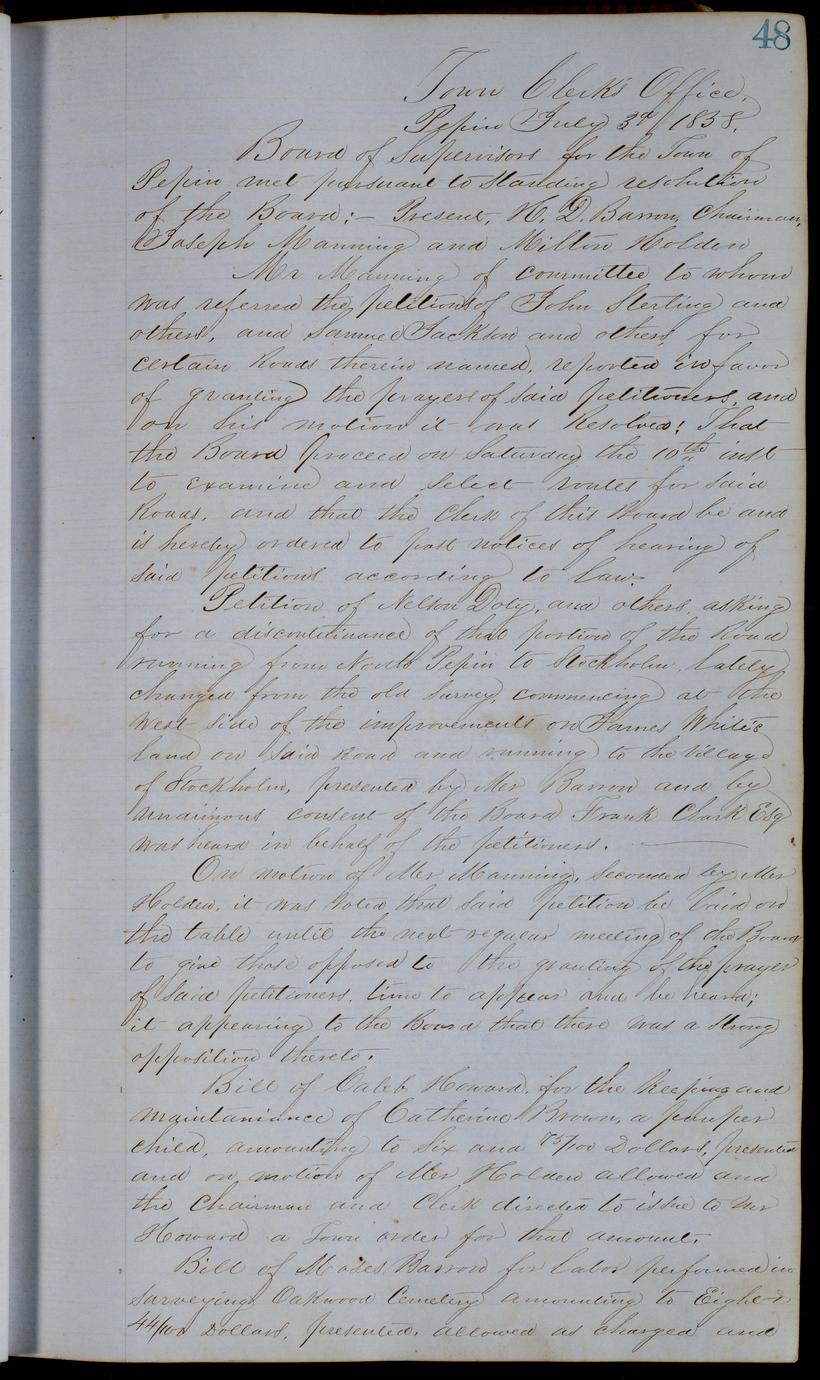 48
Town Clerk's Office,
Pepin July 3d, 1858.
Board of Supervisors for the Town of
Pepin met pursuant to Standing resolution
of the Board:- Present, H. D. Barron, Chairman,
Joseph Manning and Milton Holden
Mr Manning of committee to whom
was referred the petitions of John Sterling and
others, and Samuel Jackson and others for
certain Roads therein named, reported in favor
of granting the prayers of said petitioners, and
on his motion it was Resolved: That
the Board proceed on Saturday the 10th inst
to examine and select routes for said
Roads, and that the Clerk of this Board be and
is hereby ordered to post notices of hearing of
said petitions according to law.
Petition of Nelson Doty, and others, asking
for a discontinuance of that portion of the Road
running from North Pepin to Stockholm, lately
changed from the old survey, commencing at the
West side of the improvements on James White's
land on said Road and running to the village
of Stockholm, presented by Mr Barron and by
unaimous consent of the Board Frank Clark Esq
was heard in behalf of the petitioners.
On motion of Mr Manning, seconded by Mr
Holden, it was Voted that said petition be laid on
the table until the next regular meeting of the Board
to give those opposed to the granting of the prayer
of said petitioners, time to appear and be heard;
it appearing to the Board that there was a strong
opposition thereto.
Bill of Caleb Howard, for the keeping and
maintaniance of Catherine Brown, a pauper
child, amounting to Six and 75/100 Dollars, presented
and on motion of Mr Holden allowed and
the Chairman and Clerk directed to issue to Mr
Howard a Town order for that amount.
Bill of Moses Barron for labor performed in
surveying Oakwood Cemetery amounting to Eight &
44/100 Dollars, presented, allowed as charged and